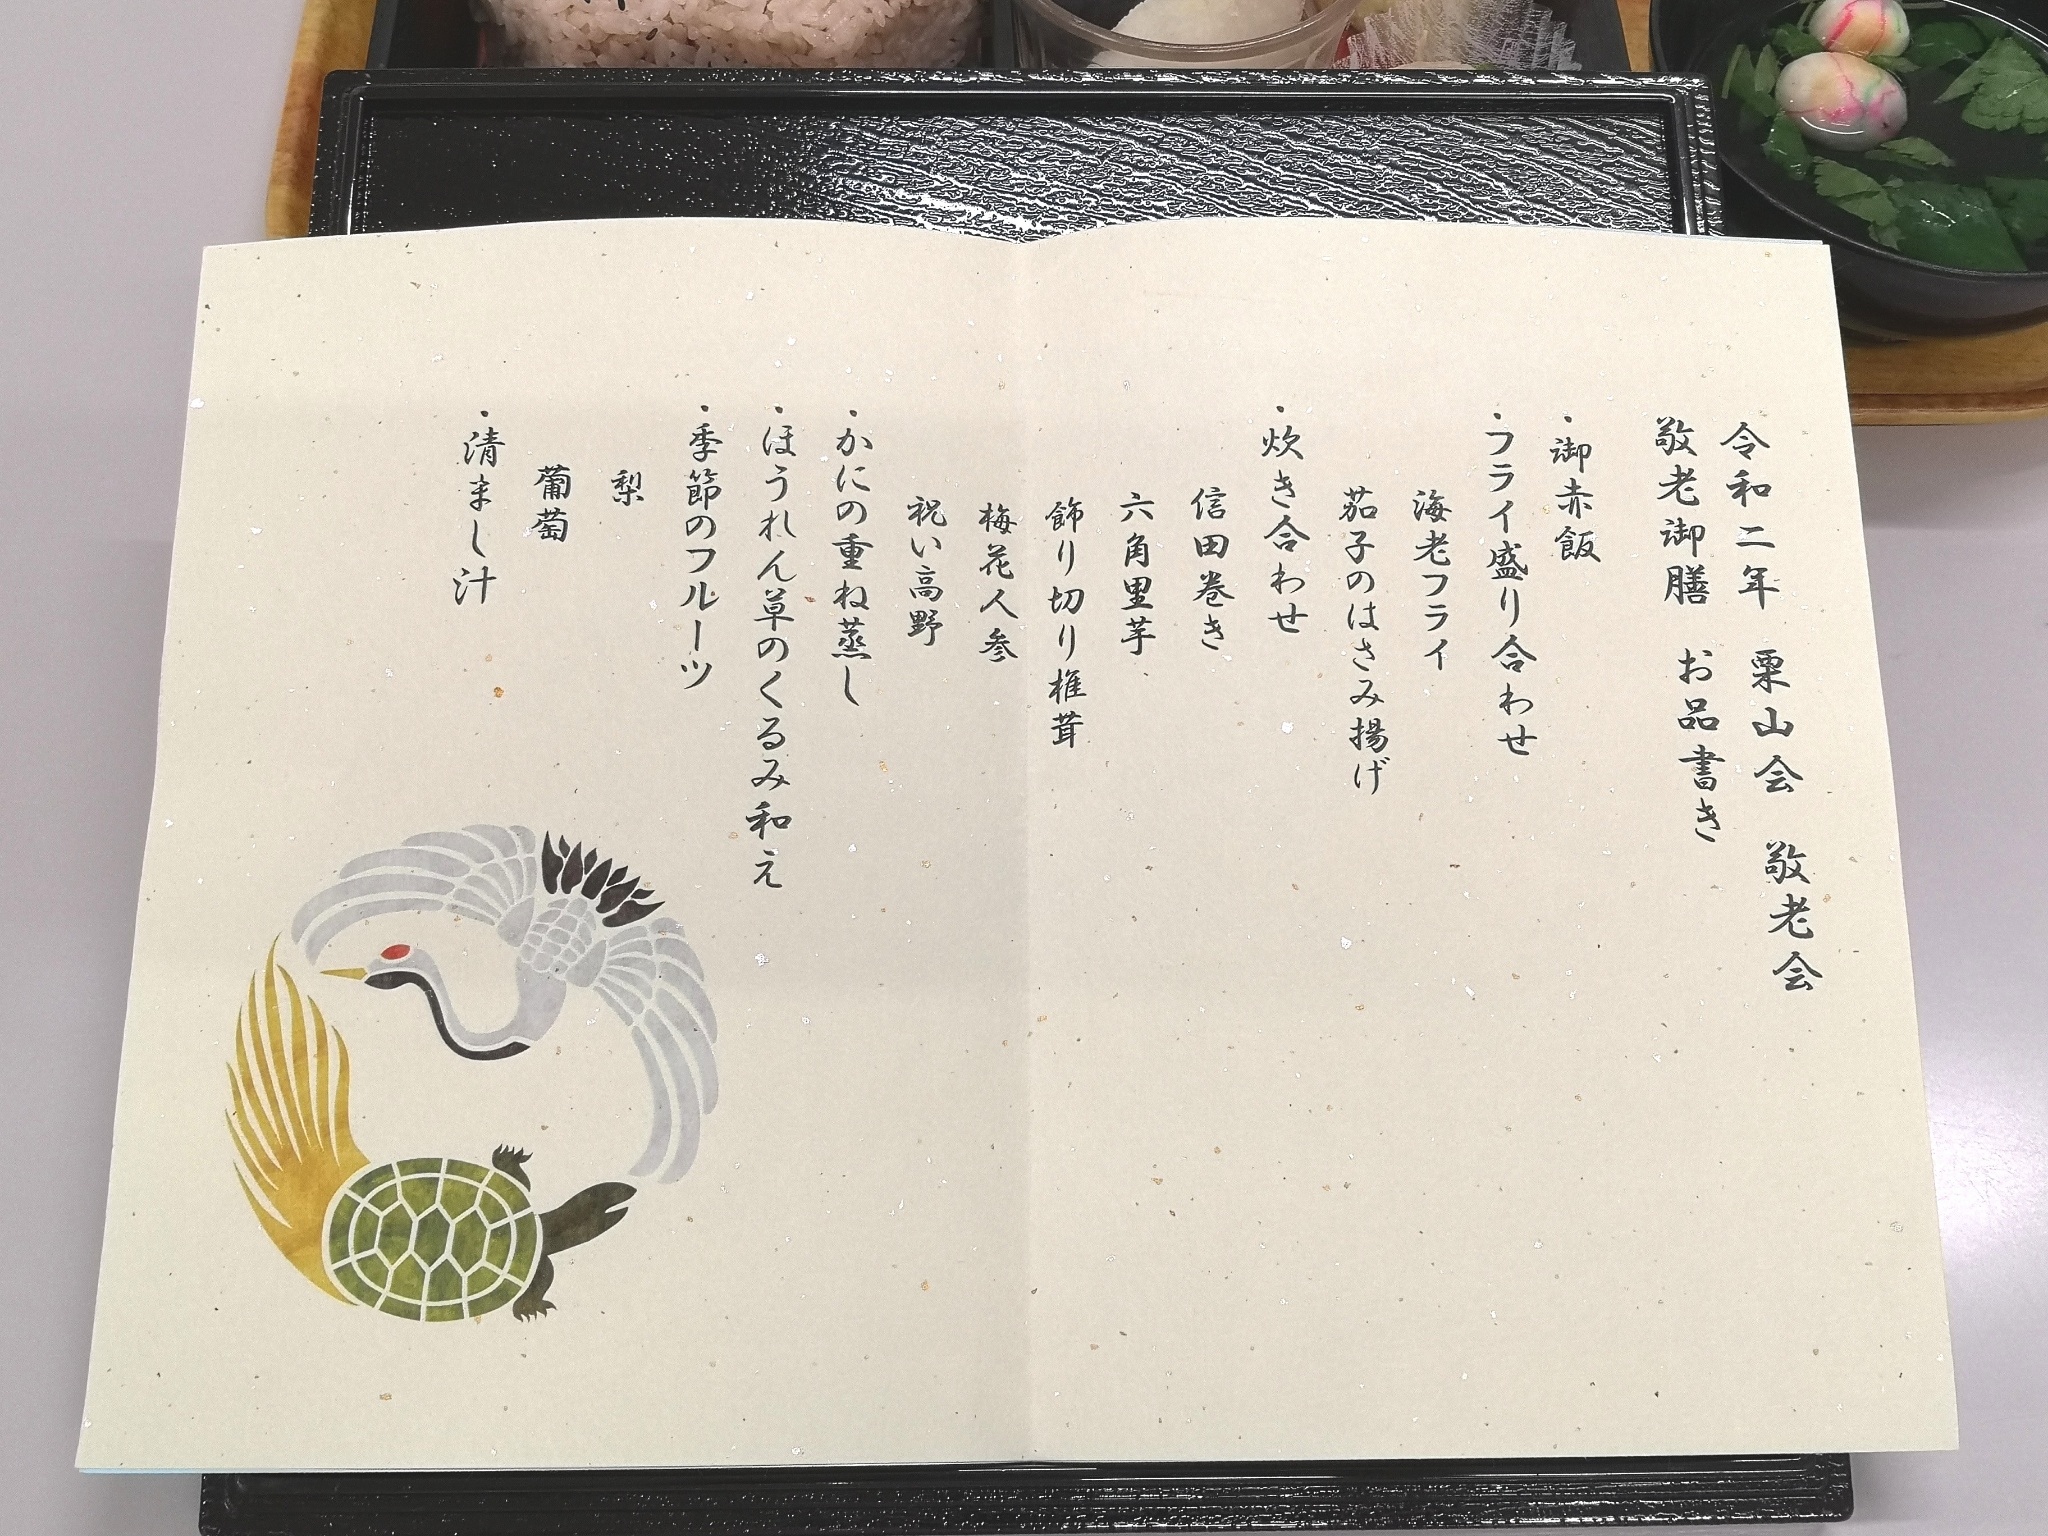 令和二年　栗山会　敬老会
敬老御膳　お品書き
・御赤飯
・フライ盛り合わせ
海老フライ
茄子のはさみ揚げ
・炊き合わせ
信田巻き
六角里芋
飾り切り椎茸
梅花人参
祝い高野
・かにの重ね蒸し
・ほうれん草のくるみ和え
・季節のフルーツ
梨
葡萄
・清まし汁